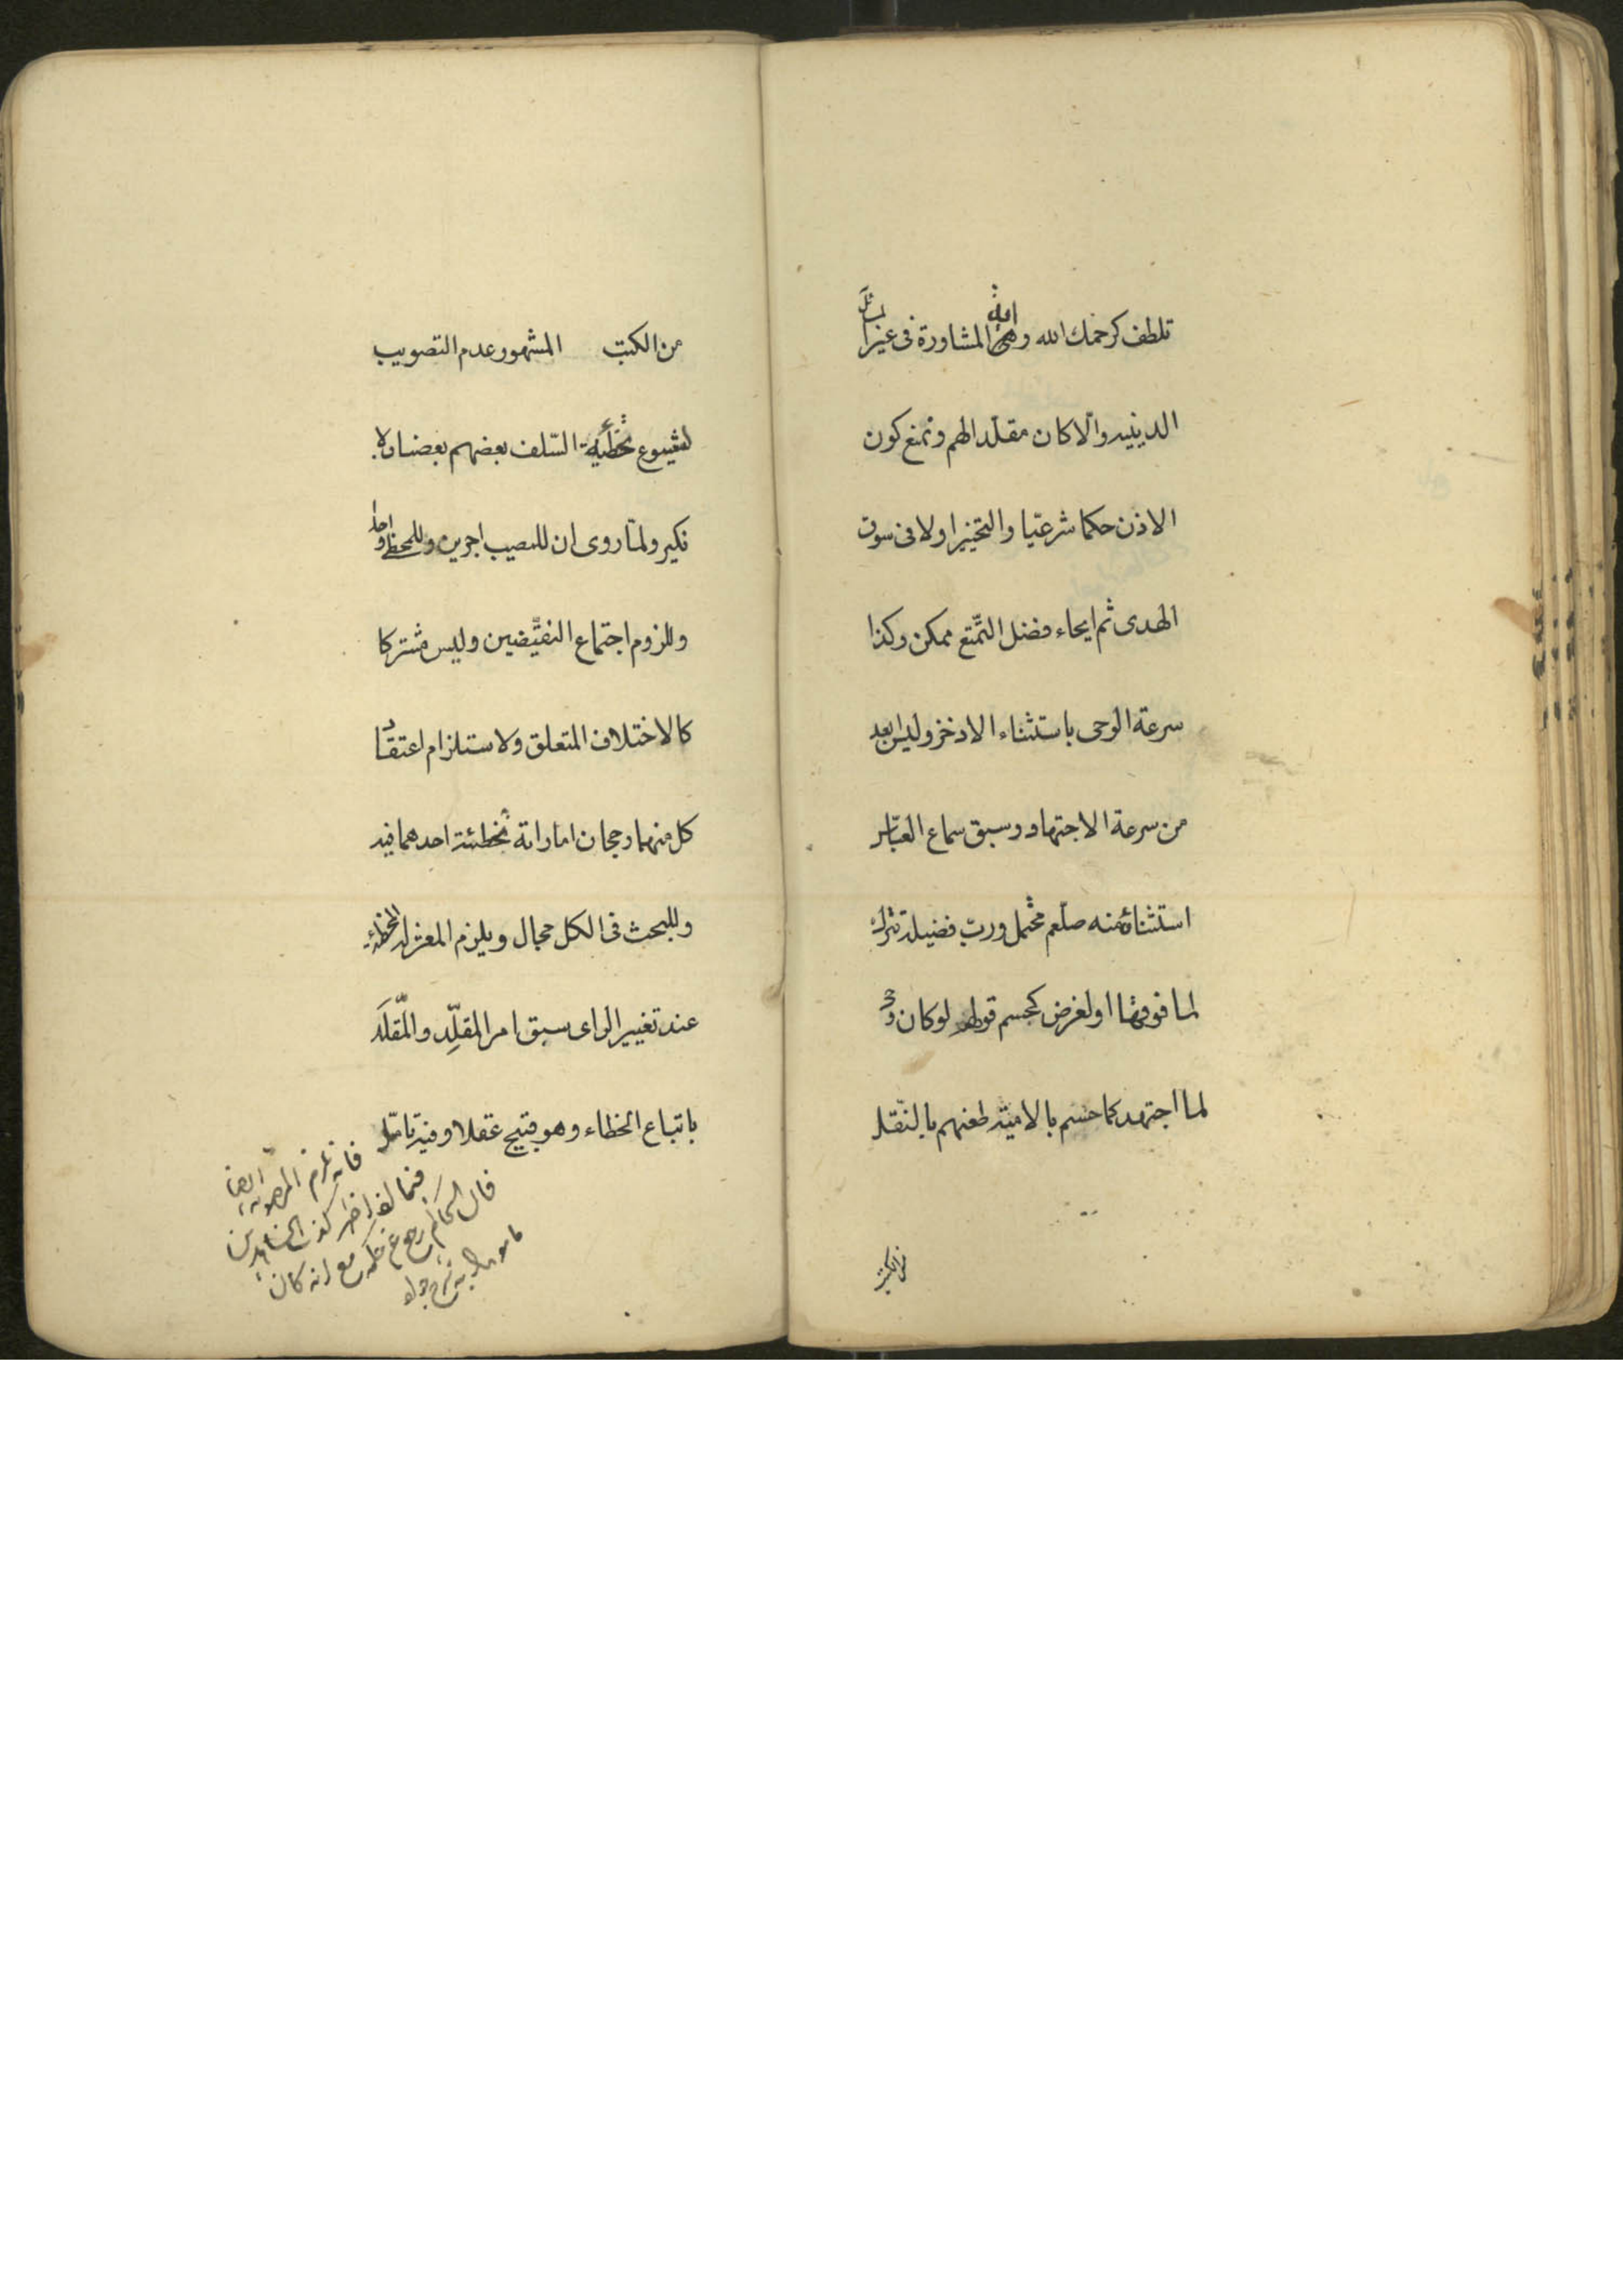 تلطف كرحمك الله وهى المشاورة فى غير المسائل
الدينيه والّا كان مقلّدا لهم ونمنع كون
الاذن حكما شرعيّا والتخيير اولا فى سوق
الهدى ثم ايحاء فضل التّمتّع ممكن وكذا
سرعة الوحى باستثناء الاذخر وليس بعد
من سرعة الاجتهاد وسبق سماع العبّاس
استثناءه منه صلّعم محتمل وربّ فضيلة تترك
لما فوقها او لغرض كجسم قولهم لو كان
لما اجتهد كما حسم بالاميّة طعنهم بالنّقل
من الكتب
من الكتب المشهور عدم التصويب
لشيوع تخطئة السّلف بعضهم بعضا ولا
نكير ولمّا روى ان للمصيب اجرين وللمخطى واحدا
وللزوم اجتماع النقيّضين وليس مشتركا
كالاختلاف المتعلق ولاستلزام اعتقاد
كل منهما رجحان امارته تخطئة احدهما فيه
وللبحث فى الكل مجال ويلزم المعتزلة المخطئة
عند تغيير الراى سبق امر المقلِّد والمقلَّد
باتباع الخطاء وهو قبيح عقلا وفيه تامّل
فانه يلزم المصوبة ايضا
فان الحاكم رجع عن حكمه مع انه كان